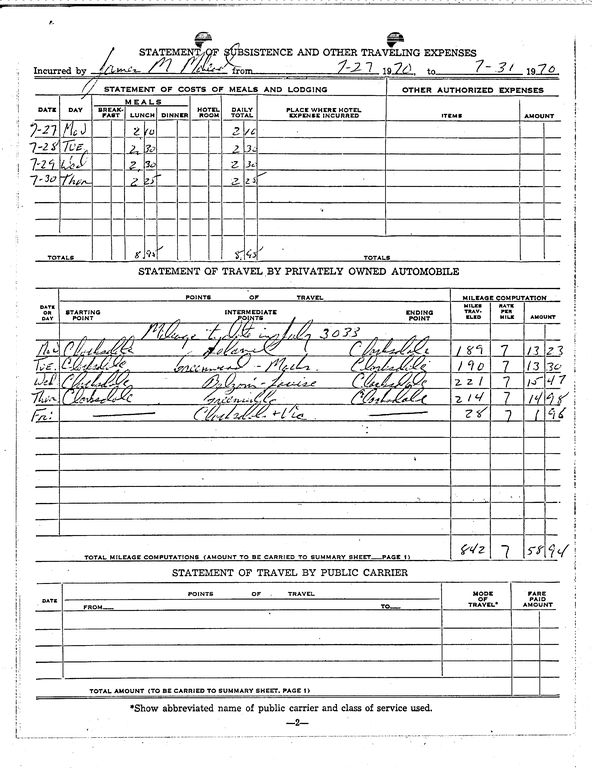 STATEMENT OF SUBSISTENCE AND OTHER TRAVELING EXPENSES
Incurred by James M from 7-27 1970, to 7-31 1970
STATEMENT OF COSTS OF MEALS AND LODGING OTHER AUTHORIZED EXPENSES
MEALS
DATE DAY BREAK-FAST LUNCH DINNER HOTEL ROOM DAILY TOTAL PLACE WHERE HOTEL EXPENSE INCURRED ITEMS AMOUNT
7-27 Mon 2 10 2 10
7-28 TUE, 2, 30 2 30
7-29 Wed 2, 30 2 30
7-30 Thur 2 25 2 25
TOTALS 8,95 8,95 TOTALS
STATEMENT OF TRAVEL BY PRIVATELY OWNED AUTOMOBILE
POINTS OF TRAVEL MILEAGE COMPUTATION
DATE OR DAY STARTING POINT INTERMEDIATE POINTS ENDING POINT MILES TRAV-ELED RATE PER MILE AMOUNT
Mileage to date in July 3033
Mon Clarksdale Clarksdale 189 7 13 23
Tue. Clarksdale Greenwood - Marks Clarksdale 190 7 13 30
Wed Clarksdale Belzoni - Louise Clarksdale 221 7 15 47
Thur Clarksdale Greenville Clarksdale 214 7 14 98
Fri: Clarksdale + Vic 28 7 1 96
TOTAL MILEAGE COMPUTATIONS (AMOUNT TO BE CARRIED TO SUMMARY SHEET PAGE 1) 842 7 58 94
STATEMENT OF TRAVEL BY PUBLIC CARRIER
DATE POINTS OF TRAVEL MODE OF TRAVEL* FARE PAID AMOUNT
FROM TO
TOTAL AMOUNT (TO BE CARRIED TO SUMMARY SHEET, PAGE 1)
*Show abbreviated name of public carrier and class of service used.
—2—